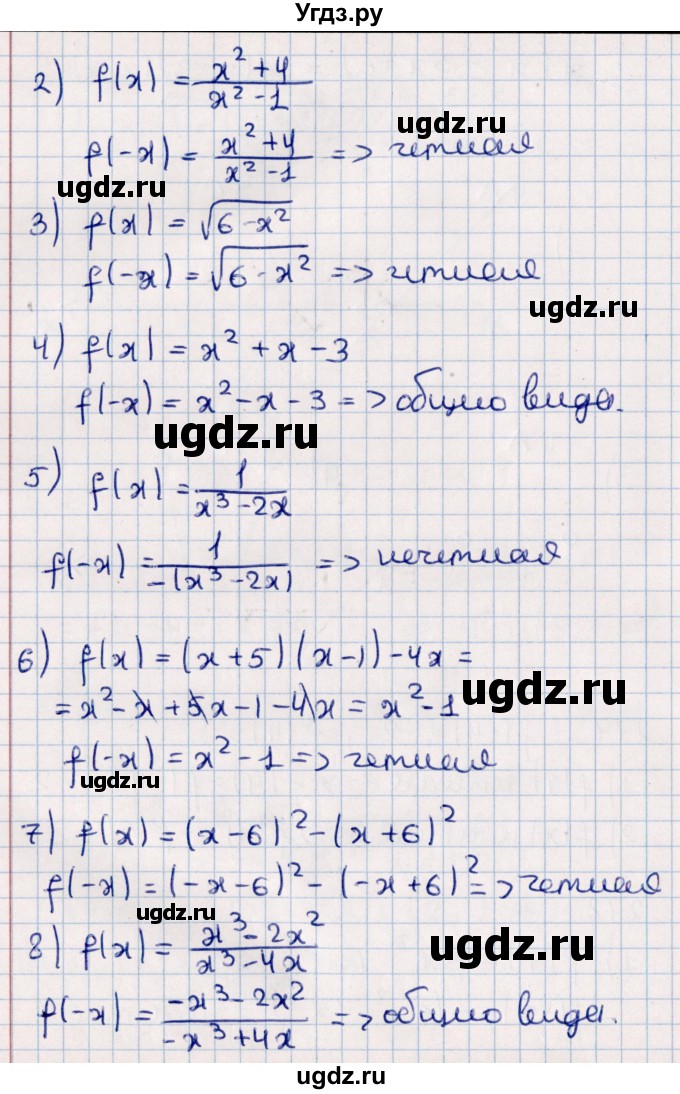 Угдз.ру
2) f(x) = (x² + 4)/(x² - 1)
ugdz.ru
f(-x) = (x² + 4)/(x² - 1) => четная
ugdz.ru
3) f(x) = √(6 - x²)
f(-x) = √(6 - x²) => четная
ugdz.ru
4) f(x) = x² + x - 3
f(-x) = x² - x - 3 => общего вида.
ugdz.ru
5) f(x) = 1/(x³ - 2x)
ugdz.ru
f(-x) = 1/(-(x³ - 2x)) => нечетная
6) f(x) = (x + 5)(x - 1) - 4x =
ugdz.ru
= x² - x + 5x - 1 - 4x = x² - 1
f(-x) = x² - 1 => четная
ugdz.ru
7) f(x) = (x - 6)² - (x + 6)²
f(-x) = (-x - 6)² - (-x + 6)² => четная
ugdz.ru
8) f(x) = (x³ - 2x²)/(x³ - 4x)
ugdz.ru
f(-x) = (-x³ - 2x²)/(-x³ + 4x) => общего вида.
ugdz.ru